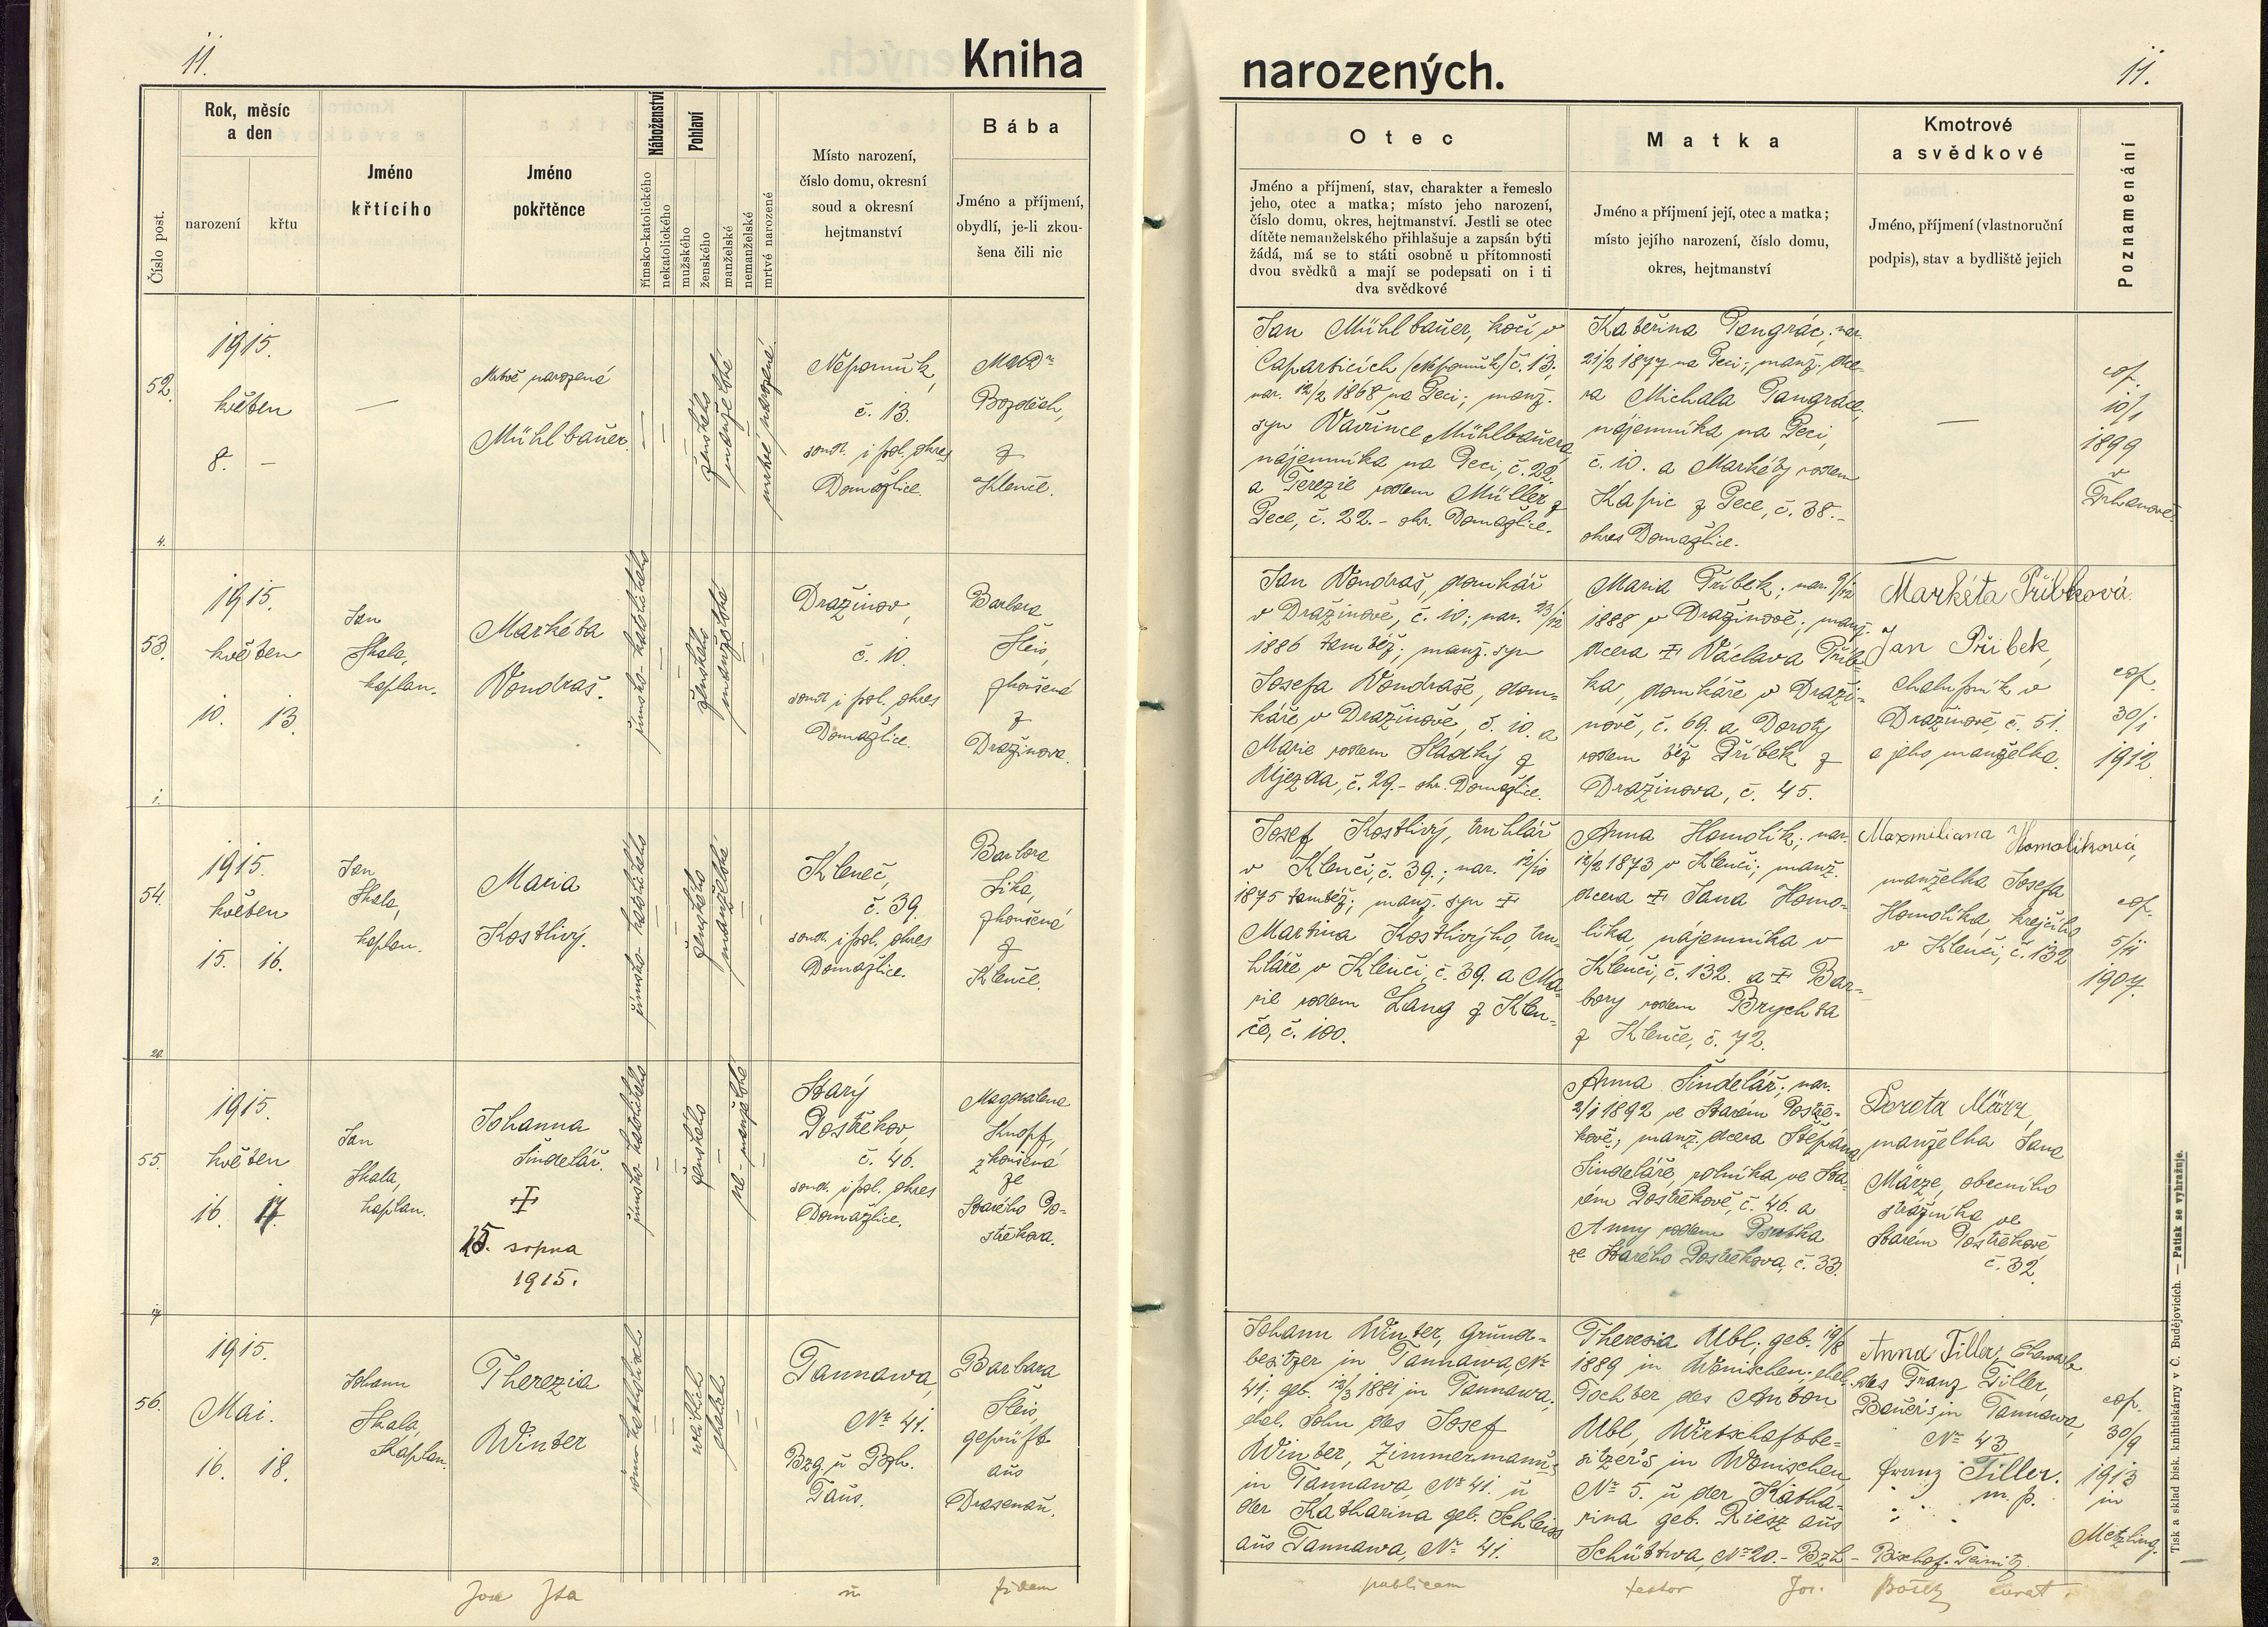 11.
Kniha
Číslo post.
Rok, měsíc
a den
narození
křtu
Jméno
křtícího
Jméno
pokřtěnce
Náboženství
římsko-katolického
nekatolického
Pohlaví
mužského
ženského
manželské
nemanželské
mrtvé narozené
Místo narození,
číslo domu, okresní
soud a okresní
hejtmanství
Bába
Jméno a příjmení,
obydlí, je-li zkou-
šena čili nic
narozených.
11.
Otec
Jméno a příjmení, stav, charakter a řemeslo
jeho, otec a matka; místo jeho narození,
číslo domu, okres, hejtmanství. Jestli se otec
dítěte nemanželského přihlašuje a zapsán býti
žádá, má se to státi osobně u přítomnosti
dvou svědků a mají se podepsati on i ti
dva svědkové
Matka
Jméno a příjmení její, otec a matka;
místo jejího narození, číslo domu,
okres, hejtmanství
Kmotrové
a svědkové
Jméno, příjmení (vlastnoruční
podpis), stav a bydliště jejich
Poznamenání
52.
4.
1915.
květen
8. –
—
Mrtvě narozená
Mühlbauer.
ženského
manželské
mrtvě narozená
Nepomuk,
č. 13.
soud. i pol. okres
Domažlice.
MUDr
Bozděch,
z
Klenče.
Jan Mühlbauer, kočí v
Caparticích (Nepomuk) č. 13;
nar. 12/2 1868 na Peci; manž.
syn Vavřince Mühlbauera
nájemníka na Peci, č. 22.
a Terezie rodem Müller z
Pece, č. 22. - okr. Domažlice.
Kateřina Pangrác; nar.
21/2 1877 na Peci; manž. dce-
ra Michala Pangráce,
nájemníka na Peci,
č. 10. a Markéty rodem
Kapic z Pece, č. 38. -
okres Domažlice.
—
cop.
10/1
1899
v
Trhanově.
53.
1.
1915.
květen
10. 13.
Jan
Skala,
kaplan.
Markéta
Vondraš.
římsko-katolického
ženského
manželské
Dražinov,
č. 10.
soud i pol. okres
Domažlice.
Barbora
Šleis,
zkoušená
z
Dražinova.
Jan Vondraš, domkář
v Dražinově, č. 10; nar. 23/12
1886 tamtéž; manž. syn
Josefa Vondraše, dom-
káře v Dražinově, č. 10. a
Marie rodem Sladký z
Újezda, č. 29. - okr. Domažlice.
Maria Příbek; nar. 9/12
1888 v Dražinově; manž.
dcera † Václava Příb-
ka, domkáře v Draži-
nově, č. 69. a Doroty
rodem též Příbek z
Dražinova, č. 45.
Markéta Přibková.
Jan Přibek,
chalupník v
Dražinově, č. 51.
a jeho manželka.
cop.
30/1
1912.
54.
20.
1915.
květen
15. 16.
Jan
Skala,
kaplan.
Maria
Kostlivý.
římsko-katolického
ženského
manželské
Kleneč,
č. 39.
soud. i pol. okres
Domažlice.
Barbora
Sika,
zkoušená
z
Klenče.
Josef Kostlivý, truhlář
v Klenči, č. 39.; nar. 12/10
1875 tamtéž; manž. syn †
Martina Kostlivýho, tru-
hláře v Klenči, č. 39. a Ma-
rie rodem Lang z Klen-
če, č. 100.
Anna Homolik; nar.
12/2 1873 v Klenči; manž.
dcera † Jana Homo-
lika, nájemníka v
Klenči, č. 132. a † Bar-
bory rodem Brychta
z Klenče, č. 72.
Maxmiliana Homoliková,
manželka Josefa
Homolíka, krejčího
v Klenči, č. 132
cop.
5/11
1907.
55.
17.
1915.
květen
16. 17.
Jan
Skala,
kaplan.
Johanna
Šindelář.
†
15. srpna
1915.
římsko-katolického
ženského
ne-manželské
Starý
Postřekov,
č. 46.
soud. i pol. okres
Domažlice.
Magdalena
Knopf,
zkoušená
ze
Starého Po-
střekova.
Anna Šindelář; nar.
2/1 1892 ve Starém Postře-
kově; manž. dcera Štěpána
Šindeláře, rolníka ve Sta-
rém Postřekově, č. 46. a
Anny rodem Psutka
ze Starého Postřekova, č. 33.
Dorota März,
manželka Jana
Märze, obecního
strážníka ve
Starém Postřekově
č. 32.
56.
2.
1915.
Mai.
16. 18.
Johann
Skala,
Kaplan.
Therezia
Winter
römisch-katholisch
weiblich
ehelich
Tannawa,
No 41.
Bzg. u Bzh.
Taus.
Barbara
Šleis,
geprüft
aus
Drasenau.
Johann Winter, Grund-
besitzer in Tannawa, No
41; geb. 12/3 1881 in Tannawa;
ehel. Sohn des Josef
Winter, Zimmermanns
in Tannawa, No 41. u
der Katharina geb. Schleiss
aus Tannawa, No 41.
Theresia Ubl; geb. 19/8
1889 in Wonischen; ehel.
Tochter des Anton
Ubl, Wirtschaftsbe-
sitzer's in Wonischen,
No 5. u der Katha-
rina geb. Riesz aus
Schüttwa, No 20. - Bzh - Bischof-Teinitz.
Anna Tiller, Ehewirtin
des Franz Tiller,
Bauer's in Tannawa,
No 43
Franz Tiller.
m. p.
cop.
30/9
1913
in
Metzling.
Jos. u fidem
publicam testor Jos.
Tisk a sklad bisk. knihtiskárny v Č. Budějovicích. — Patisk se vyhražuje.